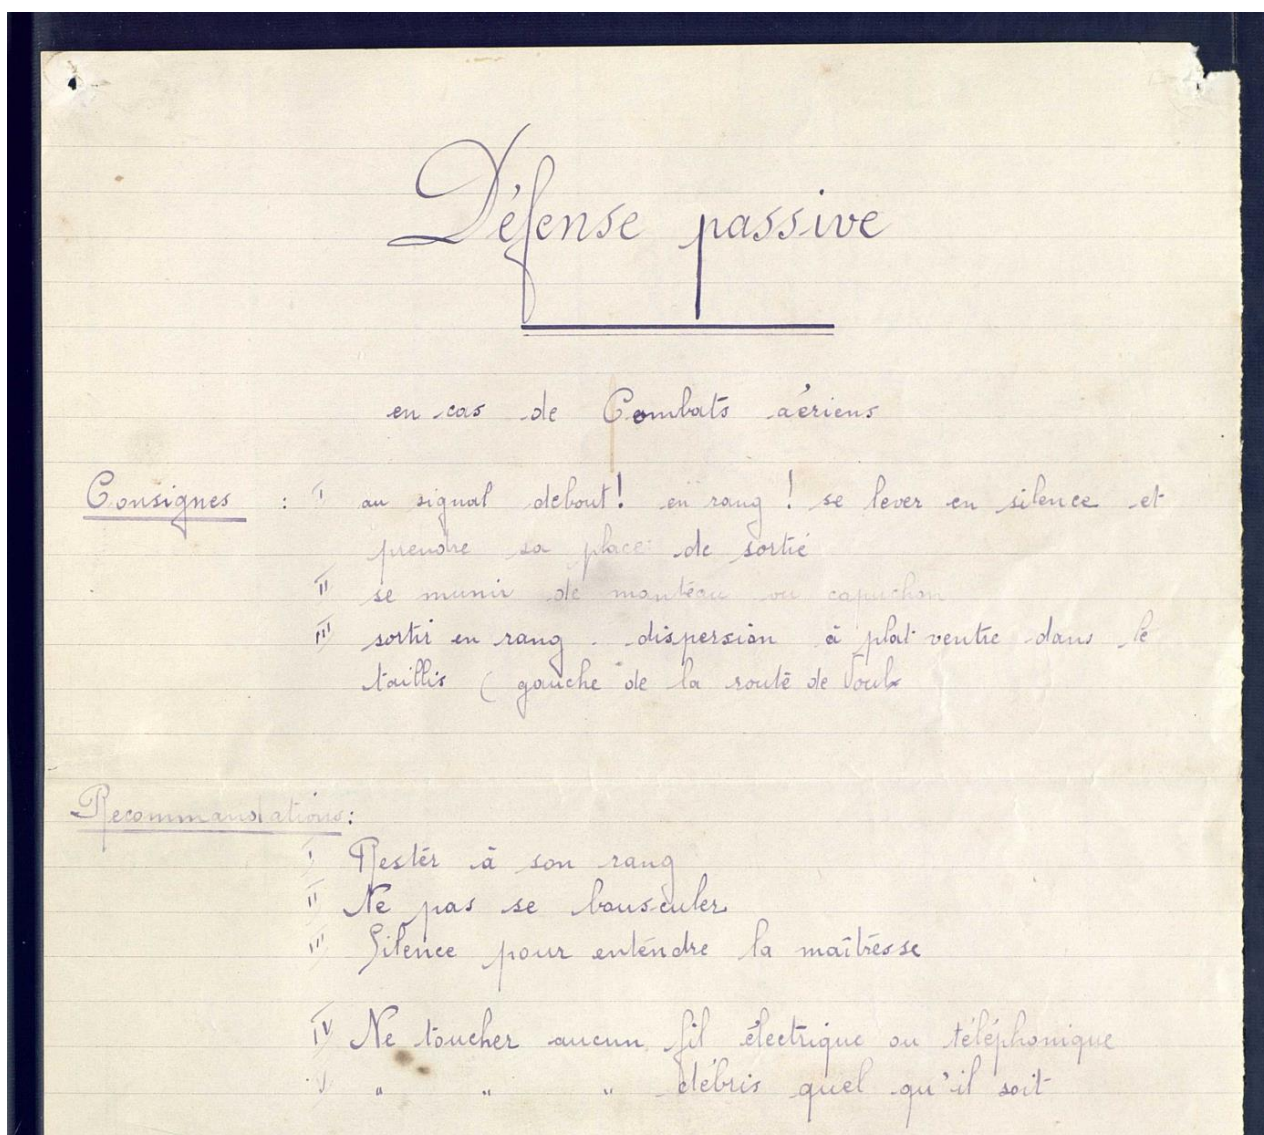 Défense passive
en cas de Combats aériens
Consignes : I au signal debout ! en rang ! se lever en silence et
prendre sa place de sortie
II se munir de manteau ou capuchon
III sortir en rang . dispersion à plat ventre dans le
taillis ( gauche de la route de Voulx
Recommandations :
I Rester à son rang
II Ne pas se bousculer
III Silence pour entendre la maîtresse
IV Ne toucher aucun fil électrique ou téléphonique
V " " " débris quel qu'il soit